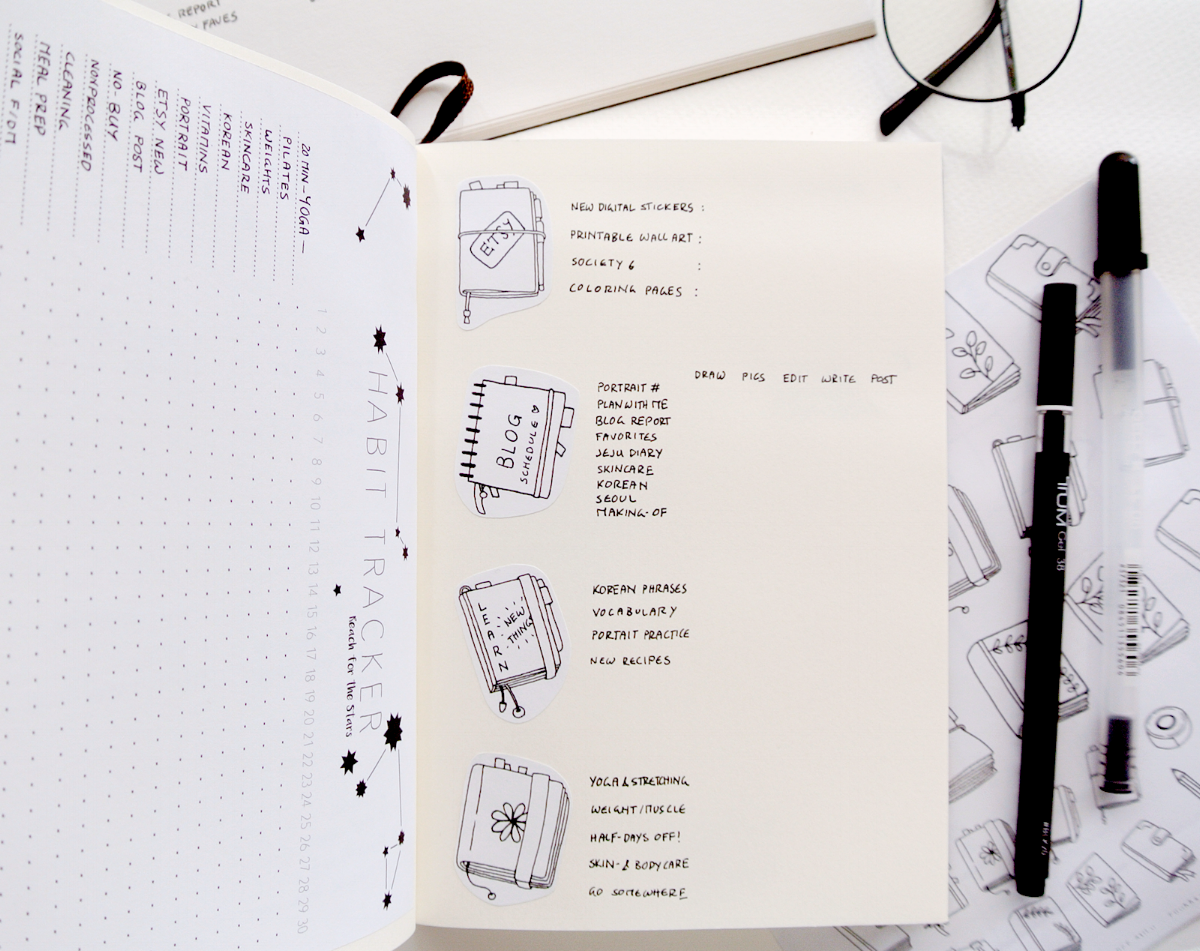 REPORT
FAVES
20 MIN - YOGA
PILATES
WEIGHTS
SKINCARE
KOREAN
VITAMINS
PORTRAIT
ETSY NEW
BLOG POST
NO BUY
NONPROCESSED
CLEANING
MEAL PREP
SOCIAL
1 2 3 4 5 6 7 8 9 10 11 12 13 14 15 16 17 18 19 20 21 22 23 24 25 26 27 28 29 30
HABIT TRACKER
Reach for the Stars
ETSY
NEW DIGITAL STICKERS :
PRINTABLE WALL ART :
SOCIETY 6 :
COLORING PAGES :
BLOG
SCHEDULE
DRAW PICS EDIT WRITE POST
PORTRAIT #
PLAN WITH ME
BLOG REPORT
FAVORITES
JEJU DIARY
SKINCARE
KOREAN
SEOUL
MAKING-OF
LEARN
NEW
THINGS
KOREAN PHRASES
VOCABULARY
PORTAIT PRACTICE
NEW RECIPES
YOGA & STRETCHING
WEIGHT/MUSCLE
HALF-DAYS OFF!
SKIN- & BODYCARE
GO SOMEWHERE
Gel 38